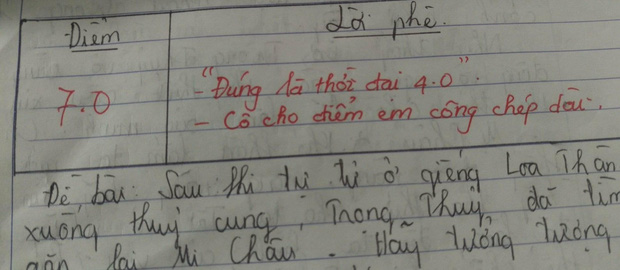 Điểm
Lời phê.
7.0
- "Đúng là thời đai 4.0".
- Cô cho điểm em công chép dài.
Đề bài: Sau khi tự tử ở giếng Loa Thàn
xuống thuỷ cung, Trọng Thuỷ đã tìm
gặp lại Mị Châu. Hãy tưởng tượng